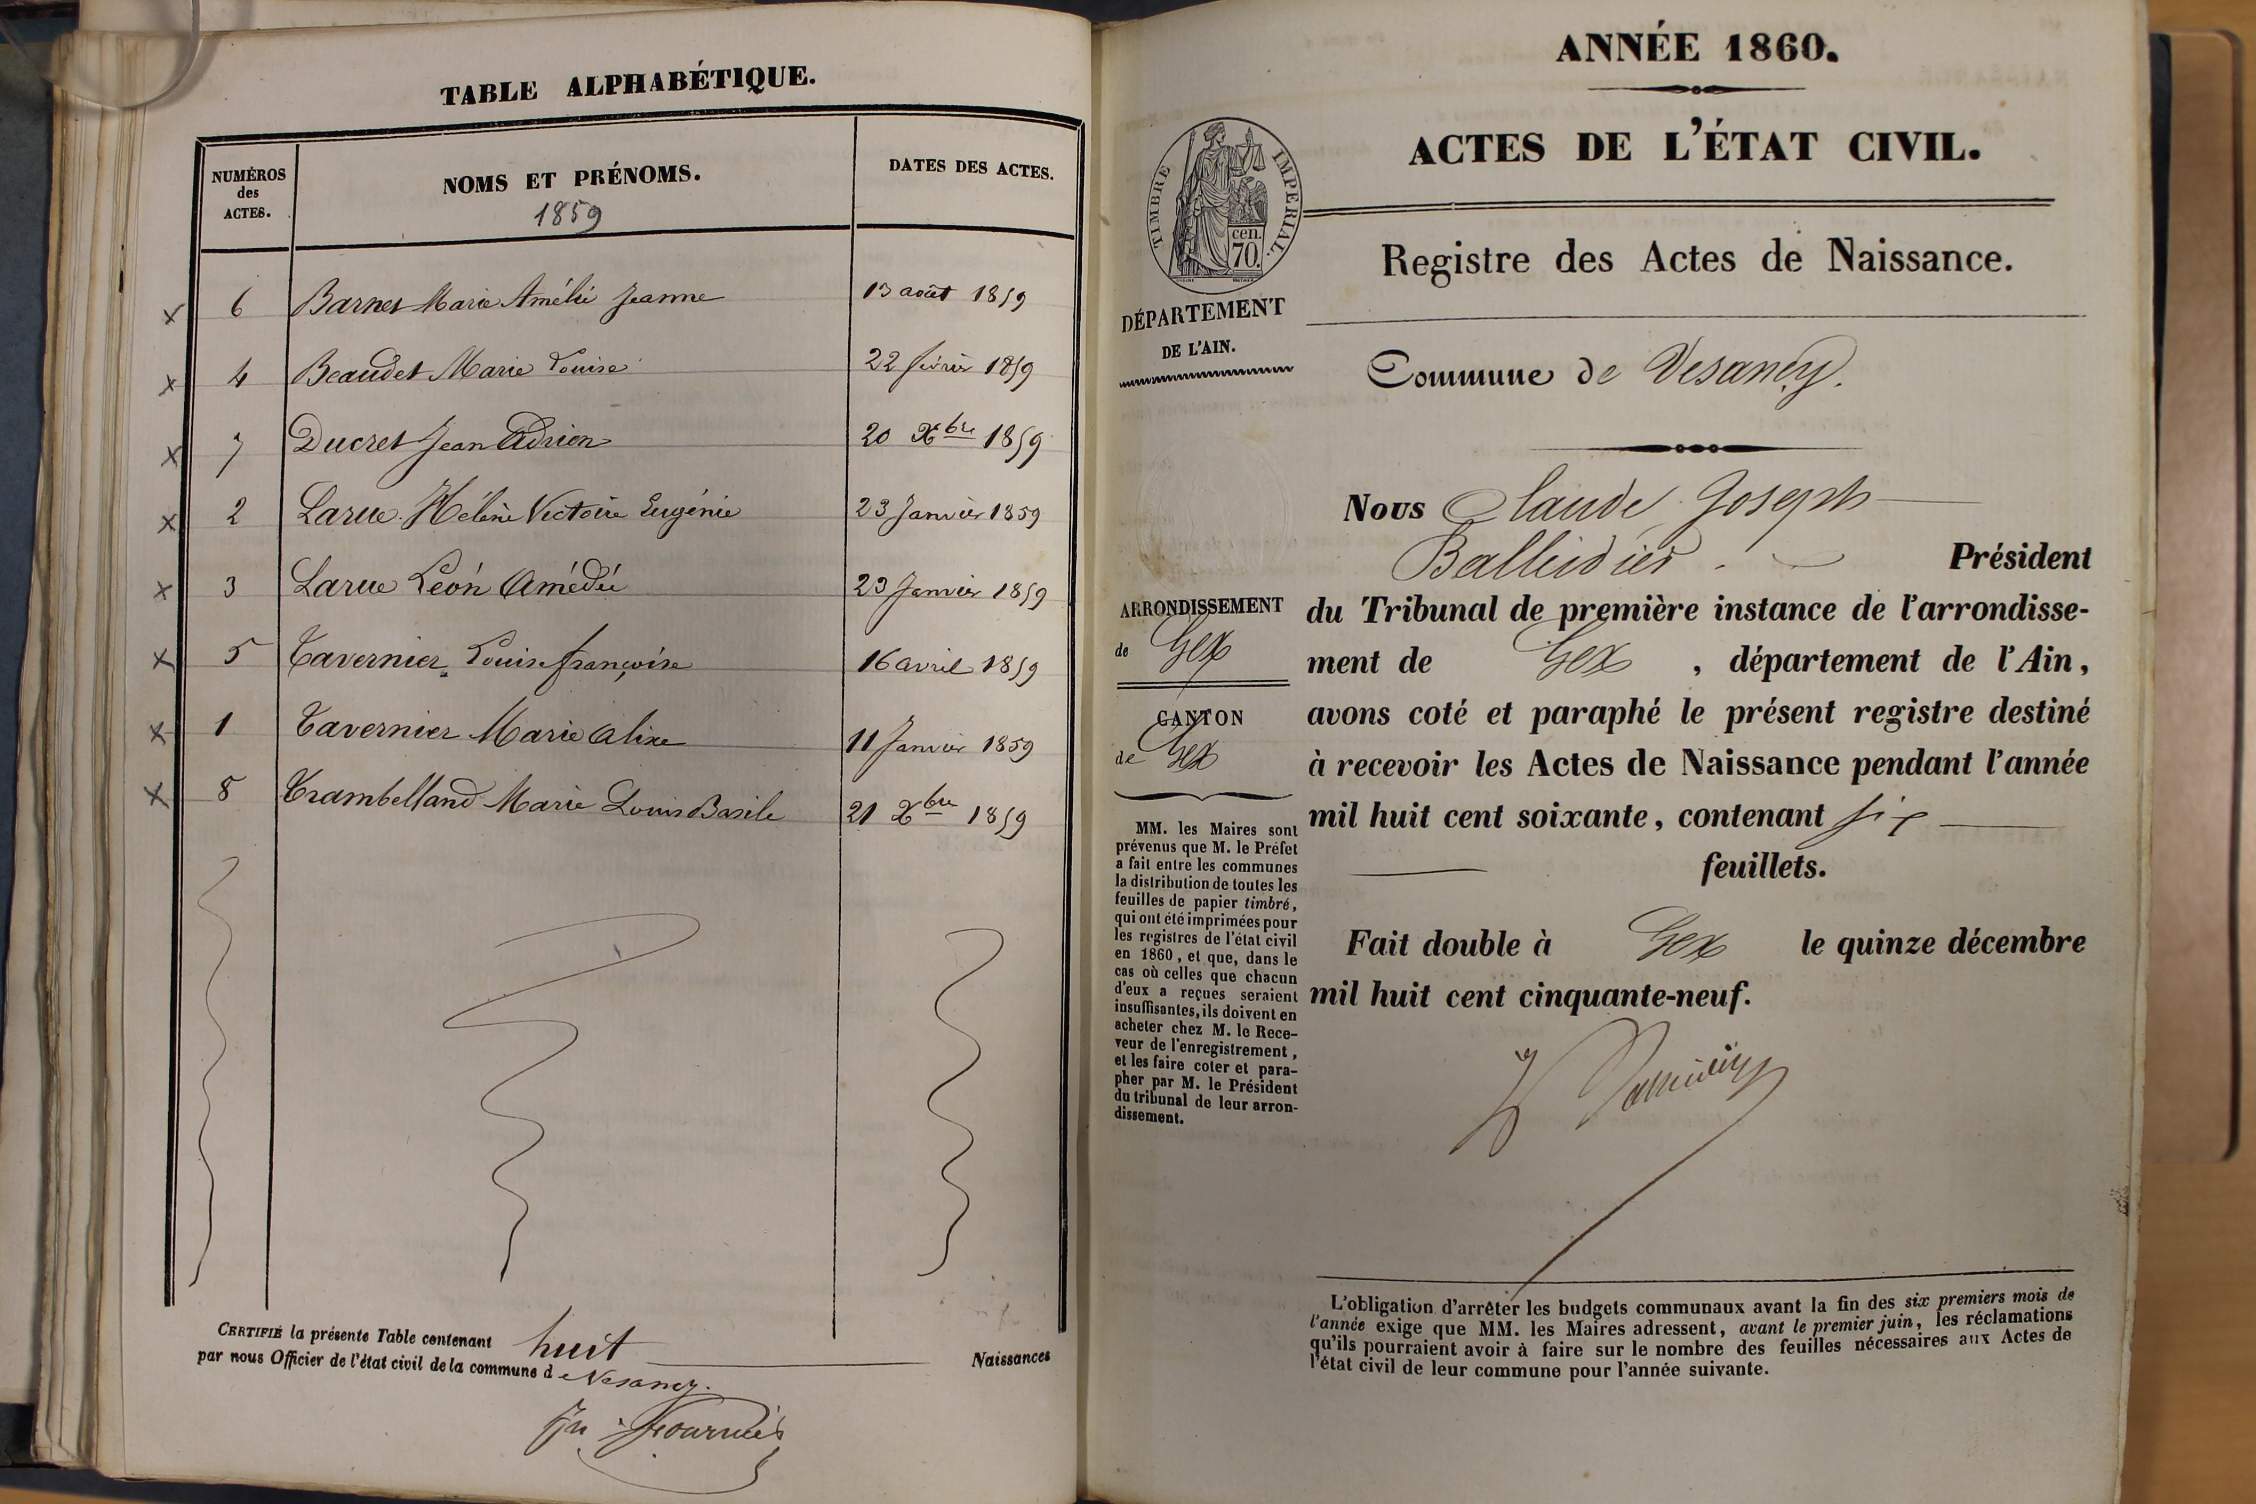 TABLE ALPHABÉTIQUE.
NUMÉROS
des
ACTES.
NOMS ET PRÉNOMS.
1859
DATES DES ACTES.
x 6 Barnet Marie Amélie Jeanne 13 août 1859
x 4 Beaudet Marie Louise 22 février 1859
x 7 Ducret Jean Adrien 20 Xbre 1859
x 2 Larue Hélène Victoire Eugénie 23 Janvier 1859
x 3 Larue Léon Amédée 23 Janvier 1859
x 5 Tavernier Louise françoise 16 avril 1859
x 1 Tavernier Marie Alixe 11 Janvier 1859
x 8 Trambelland Marie Louis Basile 21 Xbre 1859
CERTIFIÉ la présente Table contenant huit Naissances
par nous Officier de l'état civil de la commune de Vesancy.
Fournier
ANNÉE 1860.
ACTES DE L'ÉTAT CIVIL.
TIMBRE IMPERIAL.
cen.
70.
Registre des Actes de Naissance.
DÉPARTEMENT
DE L'AIN.
Commune de Vesancy.
Nous Claude Joseph
Balleidier Président
du Tribunal de première instance de l'arrondisse-
ment de Gex, département de l'Ain,
avons coté et paraphé le présent registre destiné
à recevoir les Actes de Naissance pendant l'année
mil huit cent soixante, contenant six
feuillets.
Fait double à Gex le quinze décembre
mil huit cent cinquante-neuf.
ARRONDISSEMENT
de Gex
CANTON
de Gex
MM. les Maires sont
prévenus que M. le Préfet
a fait entre les communes
la distribution de toutes les
feuilles de papier timbré,
qui ont été imprimées pour
les registres de l'état civil
en 1860, et que, dans le
cas où celles que chacun
d'eux a reçues seraient
insuffisantes, ils doivent en
acheter chez M. le Rece-
veur de l'enregistrement,
et les faire coter et para-
pher par M. le Président
du tribunal de leur arron-
dissement.
L'obligation d'arrêter les budgets communaux avant la fin des six premiers mois de
l'année exige que MM. les Maires adressent, avant le premier juin, les réclamations
qu'ils pourraient avoir à faire sur le nombre des feuilles nécessaires aux Actes de
l'état civil de leur commune pour l'année suivante.